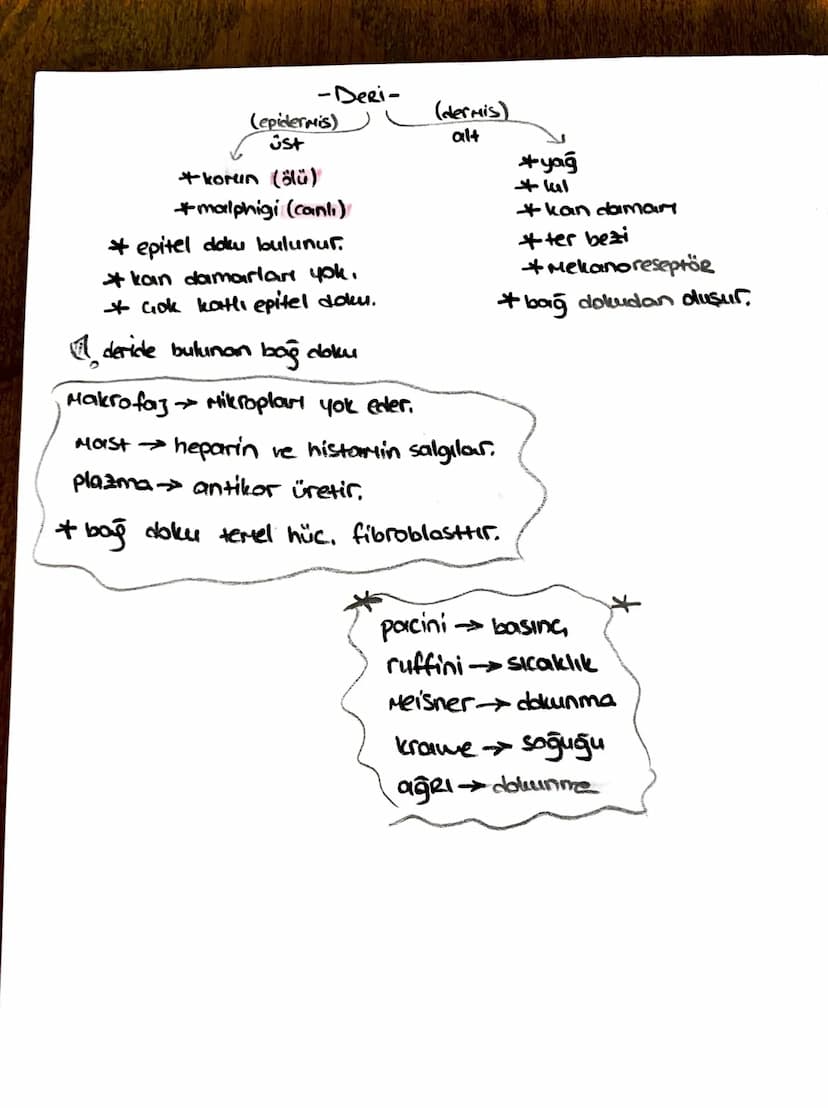 -Deri-
(epidermis) (dermis)
üst alt
*korun (ölü)
*malphigi (canlı)
* epitel doku bulunur.
* kan damarları yok.
* çok katlı epitel doku.
*yağ
*kıl
*kan damarı
*ter bezi
*mekanoreseptör
*bağ dokudan oluşur.
deride bulunan bağ doku
makrofaj → mikropları yok eder.
mast → heparin ve histamin salgılar.
plazma → antikor üretir.
* bağ doku temel hüc. fibroblasttır.
pacini → basınç
ruffini → sıcaklık
meisner → dokunma
krause → soğuğu
ağrı → dokunma